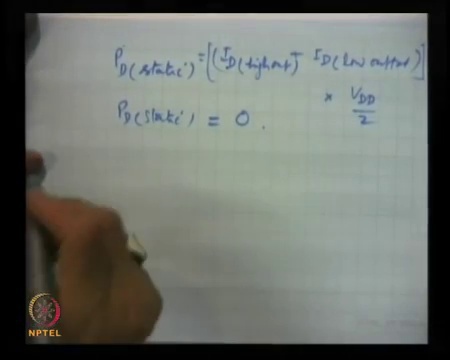 P_D(static) = [(I_D(high out) + I_D(low output)]
× V_DD/2
P_D(static) = 0.
NPTEL